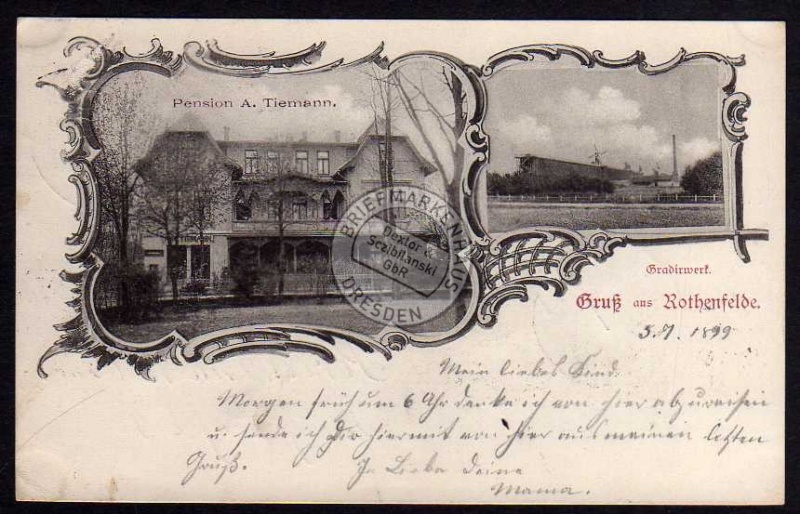 Pension A. Tiemann.
BRIEFMARKENHAUS
Dexler &
Sczibilanski
GbR
DRESDEN
Gradirwerk.
Gruß aus Rothenfelde.
5.7. 1899
Mein liebes Kind.
Morgen früh um 6 Uhr denke ich von hier abzureisen
u. sende ich Dir hiermit von hier aus meinen letzten
Gruß. In Liebe Deine
Mama.